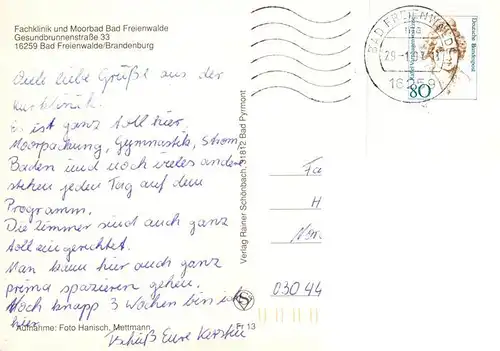 Fachklinik und Moorbad Bad Freienwalde
Gesundbrunnenstraße 33
16259 Bad Freienwalde/Brandenburg
Viele liebe Grüße aus der
Kurklinik.
Es ist ganz toll hier.
Moorpackung, Gymnastik, Strom,
Baden und noch vieles andere
stehen jeden Tag auf dem
Programm.
Die Zimmer sind auch ganz
toll eingerichtet.
Man kann hier auch ganz
prima spazieren gehen.
Noch knapp 3 Wochen bin ich
hier.
Tschüß Eure Kerstin
Aufnahme: Foto Hanisch, Mettmann
Fr 13
Verlag Rainer Schönbach, 31812 Bad Pyrmont
BAD FREIENWALDE
16259
Deutsche Bundespost
80
Fa
H
030 44